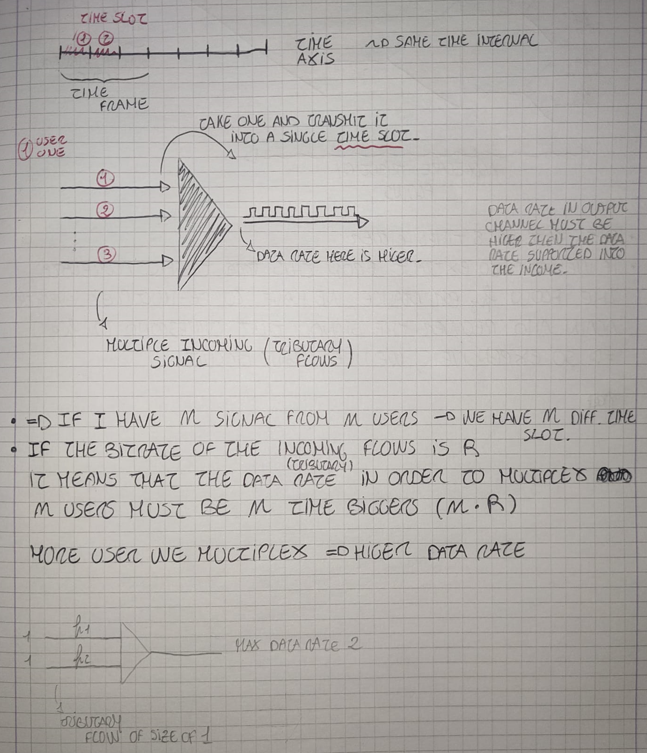 TIME SLOT
1 2
TIME AXIS ~D SAME TIME INTERNAL
TIME FRAME
TAKE ONE AND TRANSMIT IT
INTO A SINGLE TIME SLOT.
1 USER ONE
1
2
3
DATA RATE HERE IS HIGER.
DATA RATE IN OUTPUT
CHANNEL MUST BE
HIGER THEN THE DATA
RATE SUPPORTED INTO
THE INCOME.
MULTIPLE INCOMING (TRIBUTARY
SIGNAL FLOWS)
• =D IF I HAVE M SIGNAL FROM M USERS -D WE HAVE M DIFF. TIME
SLOT.
• IF THE BITRATE OF THE INCOMING FLOWS IS R
(TRIBUTARY)
IT MEANS THAT THE DATA RATE IN ORDER TO MULTIPLEX
M USERS MUST BE M TIME BIGGERS (M·R)
MORE USER WE MULTIPLEX =D HIGER DATA RATE
1 h1
1 h2 MAX DATA RATE 2
TRIBUTARY
FLOW OF SIZE OF 1